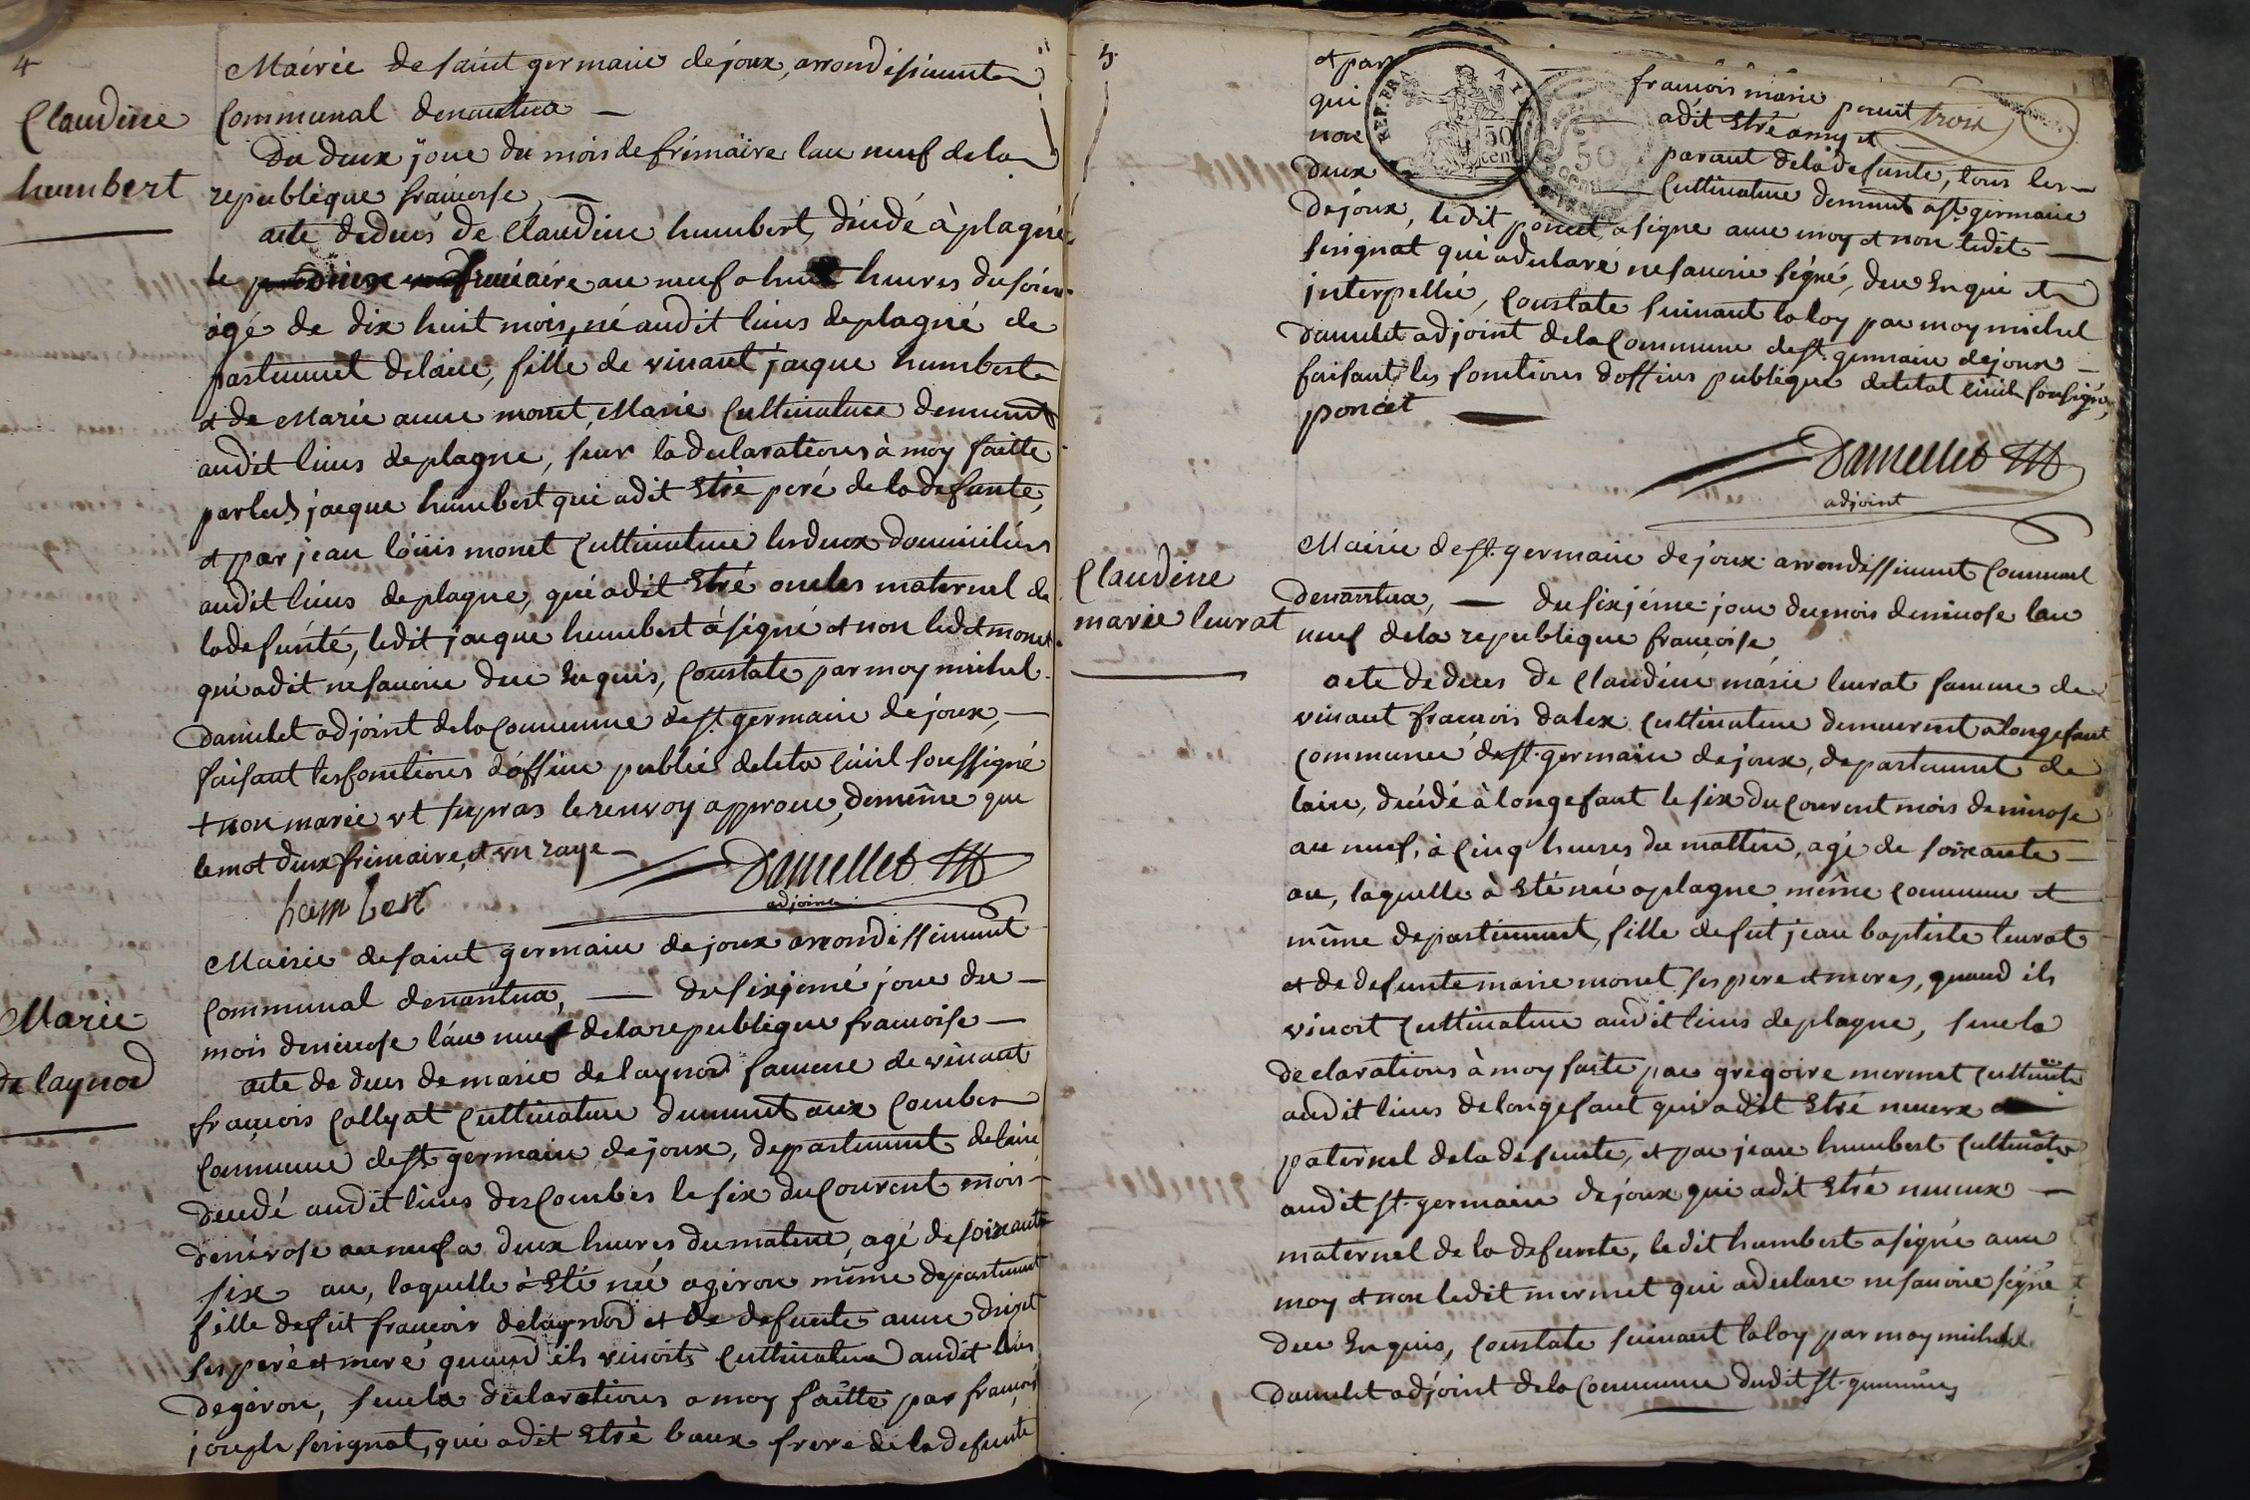 4
Claudine
humbert
Mairie de saint germain dejoux, arrondissiment
Communal denantua —
Du deux jour du mois de frimaire lan neuf de la
republique francoise —
acte dedeces de Claudine humbert, décédé à plagne
le deux frimaire an neuf a huit heures du soire
agé de dix huit mois, + né audit lieus deplagne de
partement delain, fille de vivant jacque humbert
et de Marie anne monet, Marié Cultivature demeurent
audit lieus deplagne, sur la declarations à moy faitte
parled jacque humbert qui adit Etré peré de la defunte,
et par jean loüis monet Cultivature lesdeux domiciliers
audit lieus deplagne, qui adit Etré oncles maternel de
ladefunté, ledit jacque humbert à signé et non ledit monet
qui adit nesavoir dece Enquis, Constate par moy michel
Damelet adjoint de la Commune de st. germain dejoux, —
faisant les fonctions d'officie public deleta Civil soussigné
+ non marié ut supras le renvoy approuve, demême que
le mot deux frimaire, et un raye —
humbert
Damellet
adjoint
Marie
de laynod
Mairie de saint germain dejoux arrondissiment
Communal denantua, — du sixjemé jour du —
mois denivose l'an neuf de la republique francoise —
acte de deces de marie delaynod famme de vivant
françois Collyat Cultivature demeurent aux Combes
Commune de st germain dejoux, departement delain
decedé audit lieus des Combes le six du Courent mois —
denivose an neuf a deux heures du matin, agé de soixante
six an, laquelle à Eté neé agiron même departement
fille defut francois delaynod et de defunte anne
ses peré et meré quand ils vivoits Cultivature audit lieus
degiron, sur la declarations a moy faitte par francois
joseph serignat, qui adit Etré baux frere de la defunte
5.
et par francois marie poncet trois
qui adit Etré amy et
non parant de la defunte, tous les —
deux Cultivature demeurent a st. germain
dejoux, ledit poncet, a signe avec moy et non ledit —
serignat qui adeclaré nesavoir signé, dece Enqui et
interpellié, Constate suivant la loy par moy michel
Damelet adjoint de la Commune de st. germain dejoux —
faisant les fonctions d'officies publique deletat Civil sousigné,
poncet
Damellet
adjoint
Claudine
marie leurat
Mairie de st. germain dejoux arrondissiment Communal
denantua, — du sixjéme jour du mois denivose lan
neuf de la republique françoise
acte de deces de Claudine marie leurat famme de
vivant francois dalex Cultivature demeurent alongefant
Commune de st. germain dejoux, departement de
lain, décédé à longefant le six du Courent mois denivose
an neuf, à Cinq heures du mattin, agé de soixante —
an, laquelle à Eté neé aplagne même Commune et
même departement, fille defut jean baptiste leurat
et de defunte marie monet ses pere et meres, quand ils
vivoit Cultivature audit lieus deplagne, sur la
declarations à moy faite par gregoire mermet Cultivate
audit lieus delongefant qui adit Etré neveux
paternel de la defunte, et par jean humbert Cultivate
audit st. germain dejoux qui adit Etré neveux —
maternel de la defunte, ledit humbert a signé avec
moy et non ledit mermet qui adeclare nesavoir signé
dece Enquis, Constate suivant la loy par moy michel
Damelet adjoint de la Commune dudit st. germain,